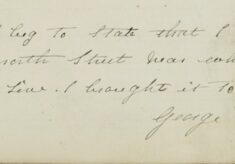 beg to state that I
worth Street was con
Live. I brought it to
George